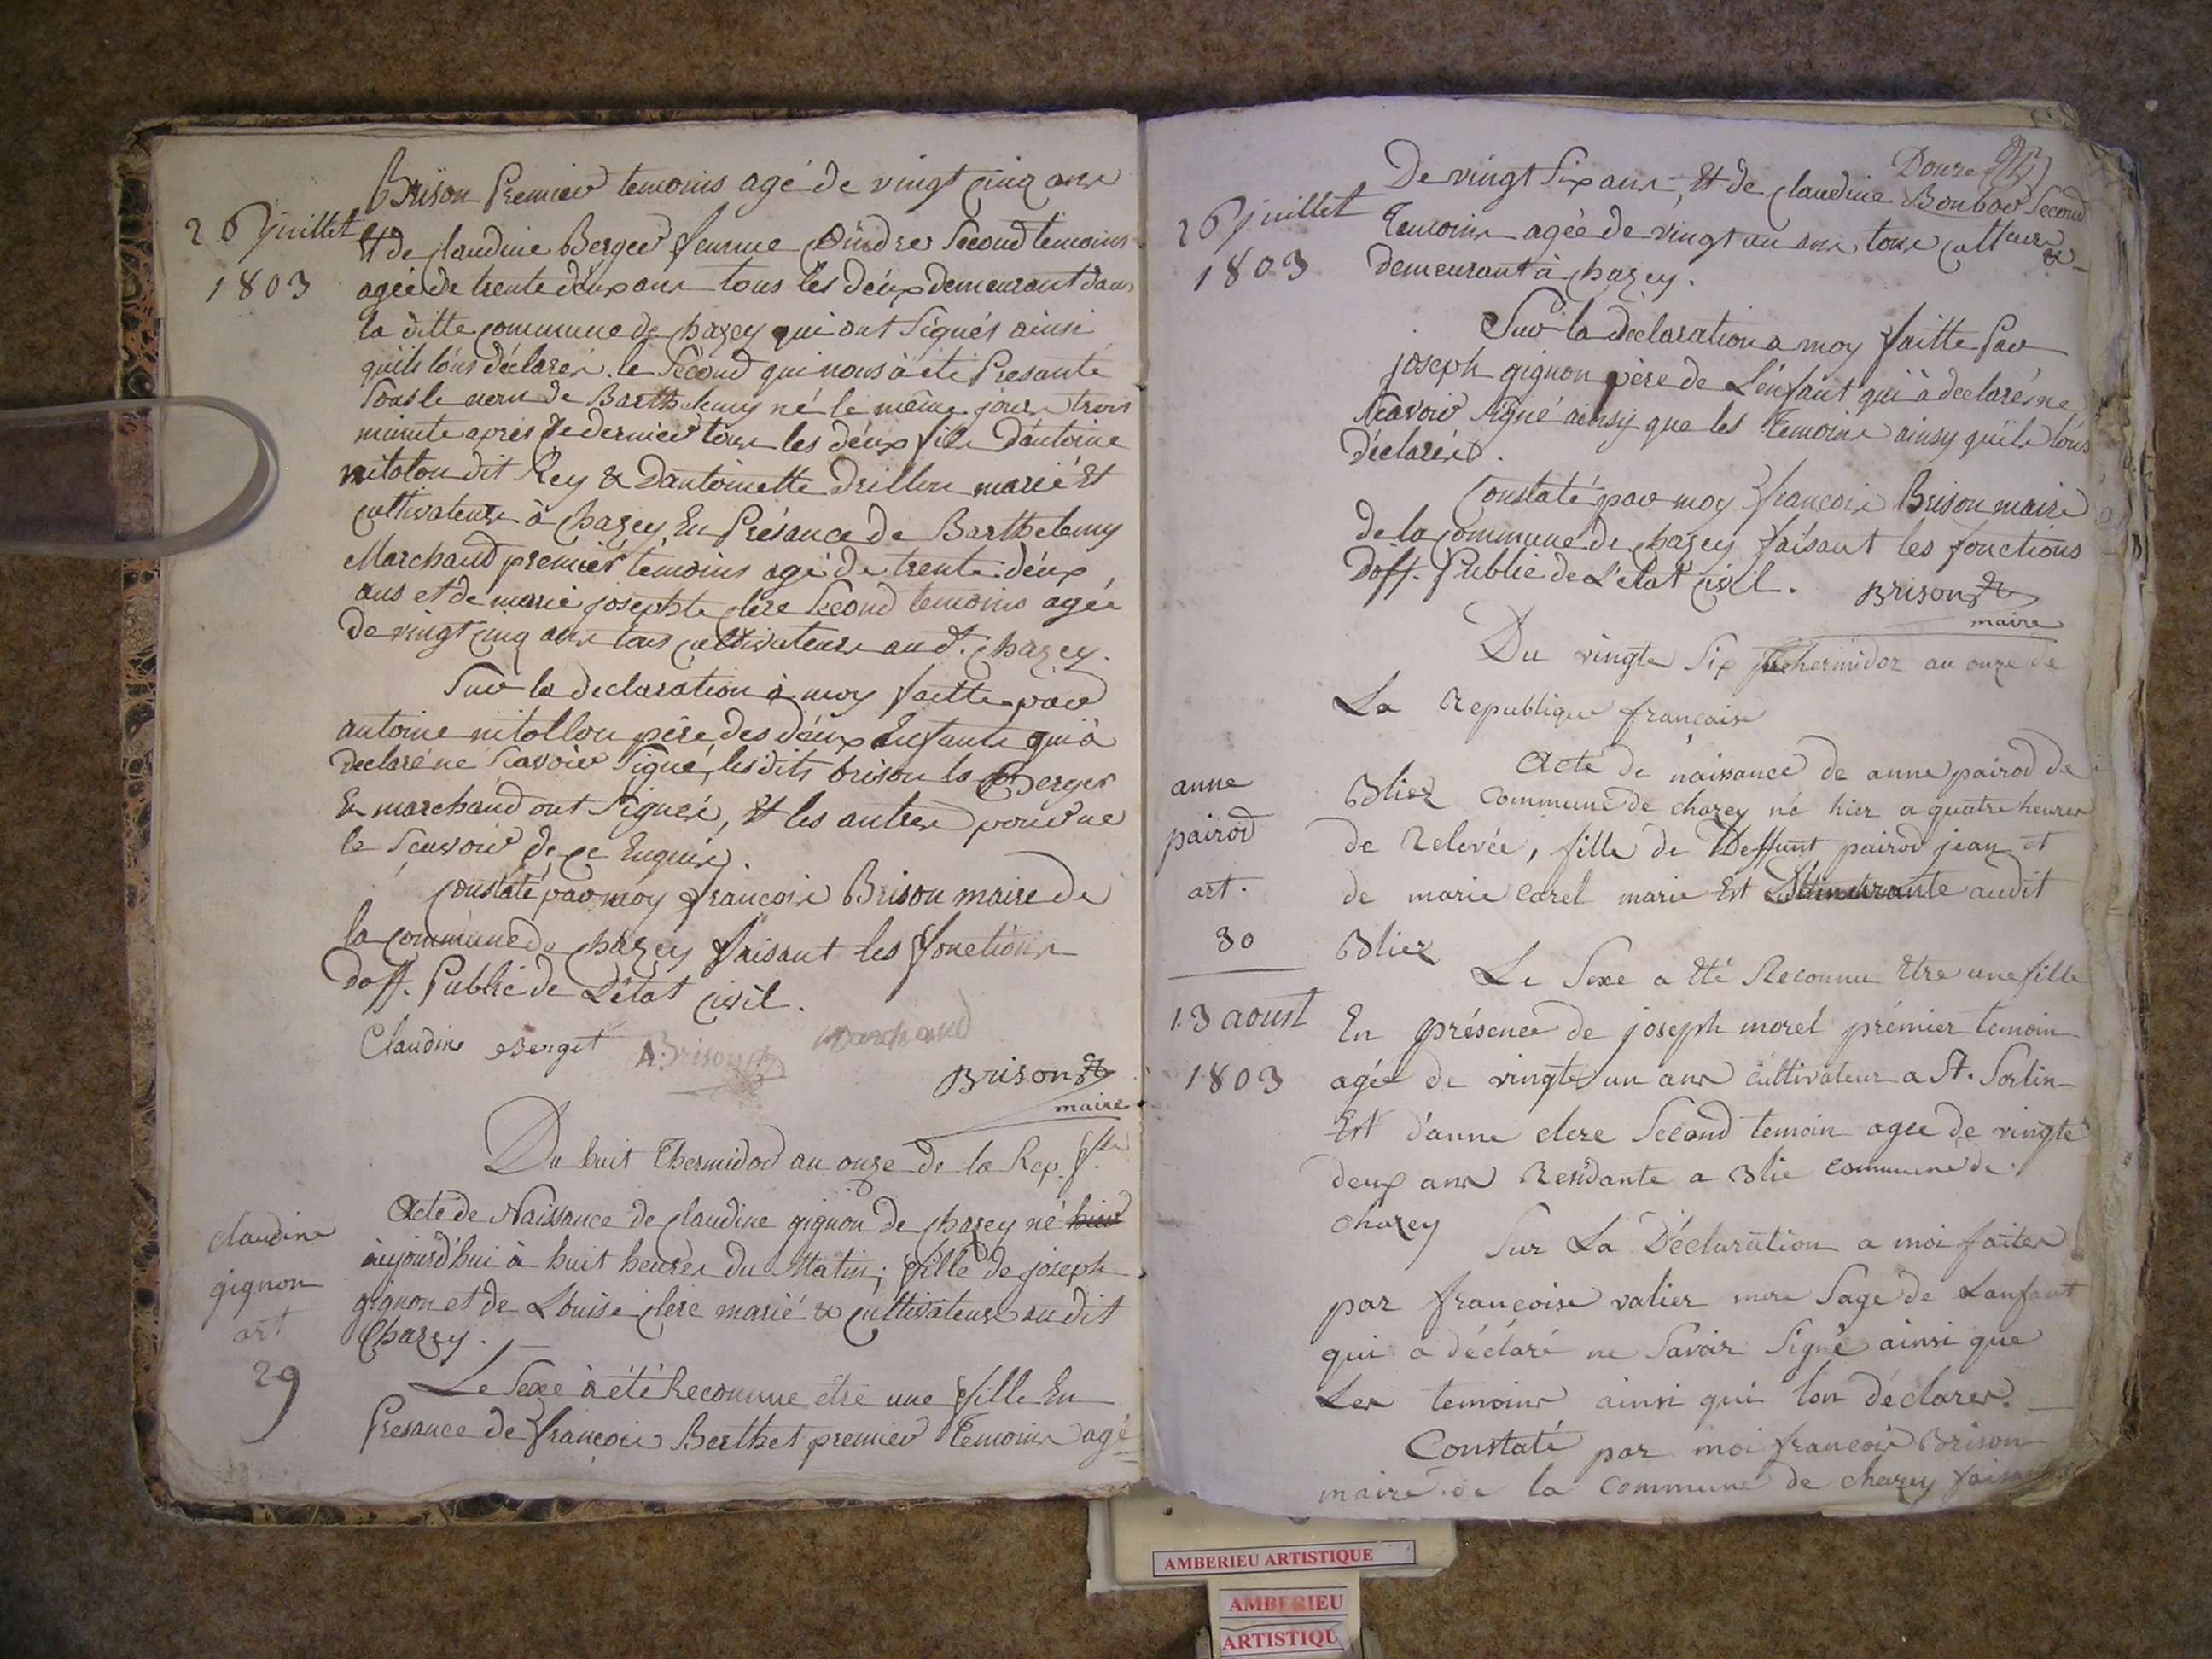 Brison Premier temoins agé de vingt cinq ans
26 juillet
1803
Et de claudine Berger femme Second temoins
agée de trente déux ans tous lés déux demeurant dans
la ditte commune de chazey qui ont Signés ainsi
quils lons déclarér. le Sécond qui nous à été Presanté
Sous le nom de Barthelemy né le même jour trois
minute aprés le dernier tous les déux fils D'antoine
nitolon dit Rey & Dantoinette Drillon marié Et
cultivateurs à Chazey, En Présance de Barthelemy
Marchand premier temoins agé de trente déux
ans et de marie josephte clere Second temoins agée
de vingt cinq ans tous cultivateurs aud. Chazey.
Sur la declaration à moy faitte par
antoine nitollon pére des déux Enfants qui à
déclaré né Scavoir Signé, les dits brison la Berger
Et marchand ont Signér, Et les autres pour ne
le Scavoir de ce Enquir.
Constaté par moy françois Brison maire de
la commune de chazey faisant les fonctions
doff. Public de L'état civil.
Claudine Berget Brison marchand
Brison
maire
Du huit Thermidor an onze de la Rep. f.
claudine
gignon
art
29
Acte de Naissance de claudine gignon de chazey né hier
aujourd'hui à huit heures du Matin; fille de joseph
gignon et de Louise clere marié & cultivateurs au dit
Chazey.
Le Sexe à été Reconnue etre une fille En
Presance de françois Berthet premier Temoins agé
Douze
26 juillet
1803
De vingt Six ans, Et de claudine Bonbor Second
Temoins agée de vingt un ans tous cultiurs
demeurant à Chazey.
Sur la déclaration a moy faitte Par
joseph gignon père de L'énfant qui à declaré né
Scavoir Signé ainsy que les Temoins ainsy quils lons
déclarér.
Constaté par moy françois Brison maire
de la commune de chazey faisant les fonctions
doff. Public de L'état civil. Brison
maire
Du vingte Six Thermidor an onze de
La Republique française
anne
pairod
art.
30
13 aoust
1803
Acte de naissance de anne pairod de
Bliez Commune de chazey né hier a quatre heures
de Relevée, fille de Deffunt pairod jean et
de marie carel marie Est audit
Bliez
Le Sexe a Eté Reconnu Etre une fille
En présence de joseph morel prémier temoin
agée de vingte un ans cultivateur a St. Sorlin
Est d'anne clere Second temoin agée de vingte
deux ans Residante a Blie Commune de
chazey
Sur La Déclaration a moi faites
par françoise valier mere Sage de Lanfant
qui a déclaré ne Savoir Signé ainsi que
Les temoins ainsi qui lon déclarer.
Constaté par moi françois Brison
maire de la Commune de chazey faisant
AMBERIEU ARTISTIQUE
AMBERIEU
ARTISTIQU